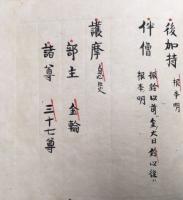 後加持 根本明
伴僧 振鈴以前 大日 鈴以後
根本明
護摩 息災
部主 金輪
諸尊 三十七尊